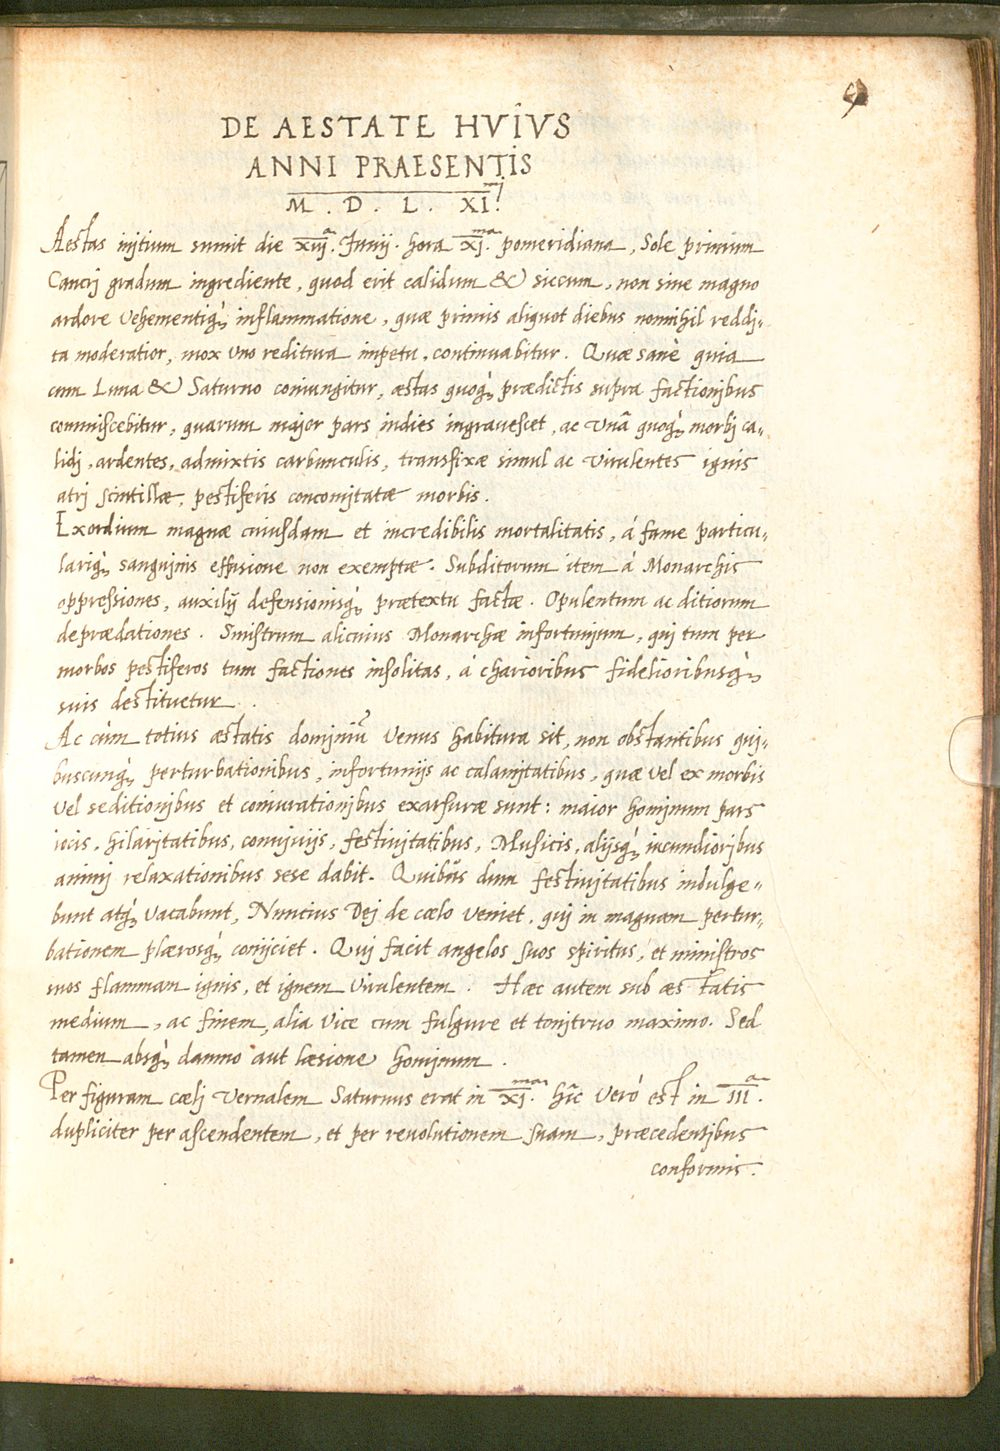 DE AESTATE HVIVS
ANNI PRAESENTIS
M . D . L . XI.
Aestas initium sumit die xiij.ᵃ Junij. hora xj.ᵐᵃ pomeridiana, Sole primum
Cancrj gradum ingrediente, quod erit calidum & siccum, non sine magno
ardore vehementiq̀ʒ inflammatione, quæ primis aliquot diebus nonnihil reddj-
ta moderatior, mox uno reditura impetu, continuabitur. Quæ sanè quia
cum Luna & Saturno coniungitur, æstas quoq̀ʒ prædictis supra factionjbus
commiscebitur, quarum major pars indies ingravescet, ac vnâ quoq̀ʒ morbj ca-
lidj, ardentes, admixtis carbunculis, transfixæ simul ac virulentes ignis
atrj scintillæ, pestiferis concomjtatæ morbis.
Exordium magnæ cuiusdam et incredibilis mortalitatis, á fame particu-
lariq̀ʒ sanguinis effusione non exemptæ. Subditorum item á Monarchis
oppressiones, auxilij defensionisq̀ʒ prætextu factæ. Opulentum ac ditiorum
deprædationes. Sinistrum alicuius Monarchæ infortunium, quj tum per
morbos pestiferos tum factiones insolitas, á charioribus fidelioribusq̀ʒ
suis destituetur.
Ac cùm totius æstatis dominiũ Venus habitura sit, non obstantibus quj-
buscunq̀ʒ perturbationibus, infortunijs ac calamjtatibus, quæ vel ex morbis
vel seditionjbus et coniurationjbus exarsuræ sunt: maior homjnum pars
iocis, hilarjtatibus, conujuijs, festiujtatibus, Musicis, alijsq̀ʒ iucundiorjbus
animj relaxationibus sese dabit. Quibus dum festiujtatibus indulge-
bunt atq̀ʒ vacabunt, Nuncius Dej de cælo veniet, quj in magnam pertur-
bationem plærosq̀ʒ conijciet. Quj facit angelos suos spiritus, et ministros
suos flammam ignis, et ignem virulentem. Hæc autem sub æstatis
medium, ac finem, alia vice cum fulgure et tonjtruo maximo. Sed
tamen absq̀ʒ damno aut læsione homjnum.
Per figuram cælj vernalem Saturnus erat in xj.ᵐᵃ hîc verò est in III.ᵃ
dupliciter per ascendentem, et per revolutionem suam, præcedentjbus
conformis.